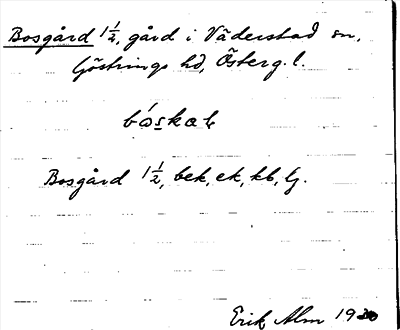 Bosgård 1 1/2, gård i Väderstad sn,
Göstrings hd, Österg. l.
Bosgård 1 1/2, bek, ek, kb, lj.
Erik Alm 19